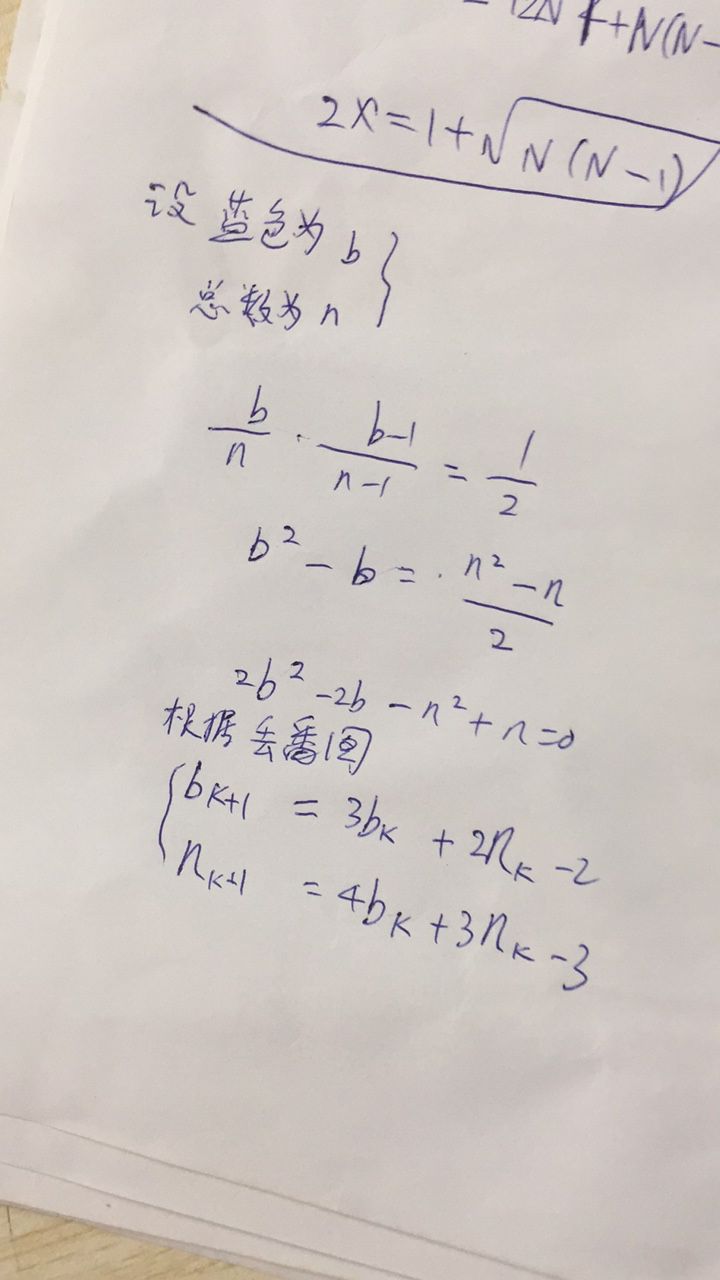 12N + N(N-
2x=1+√N(N-1)
设 蓝色为 b
总数为 n
b/n · b-1/n-1 = 1/2
b² - b = n² - n/2
2b² - 2b - n² + n = 0
根据丢番图
b_{K+1} = 3b_K + 2n_K - 2
n_{K+1} = 4b_K + 3n_K - 3